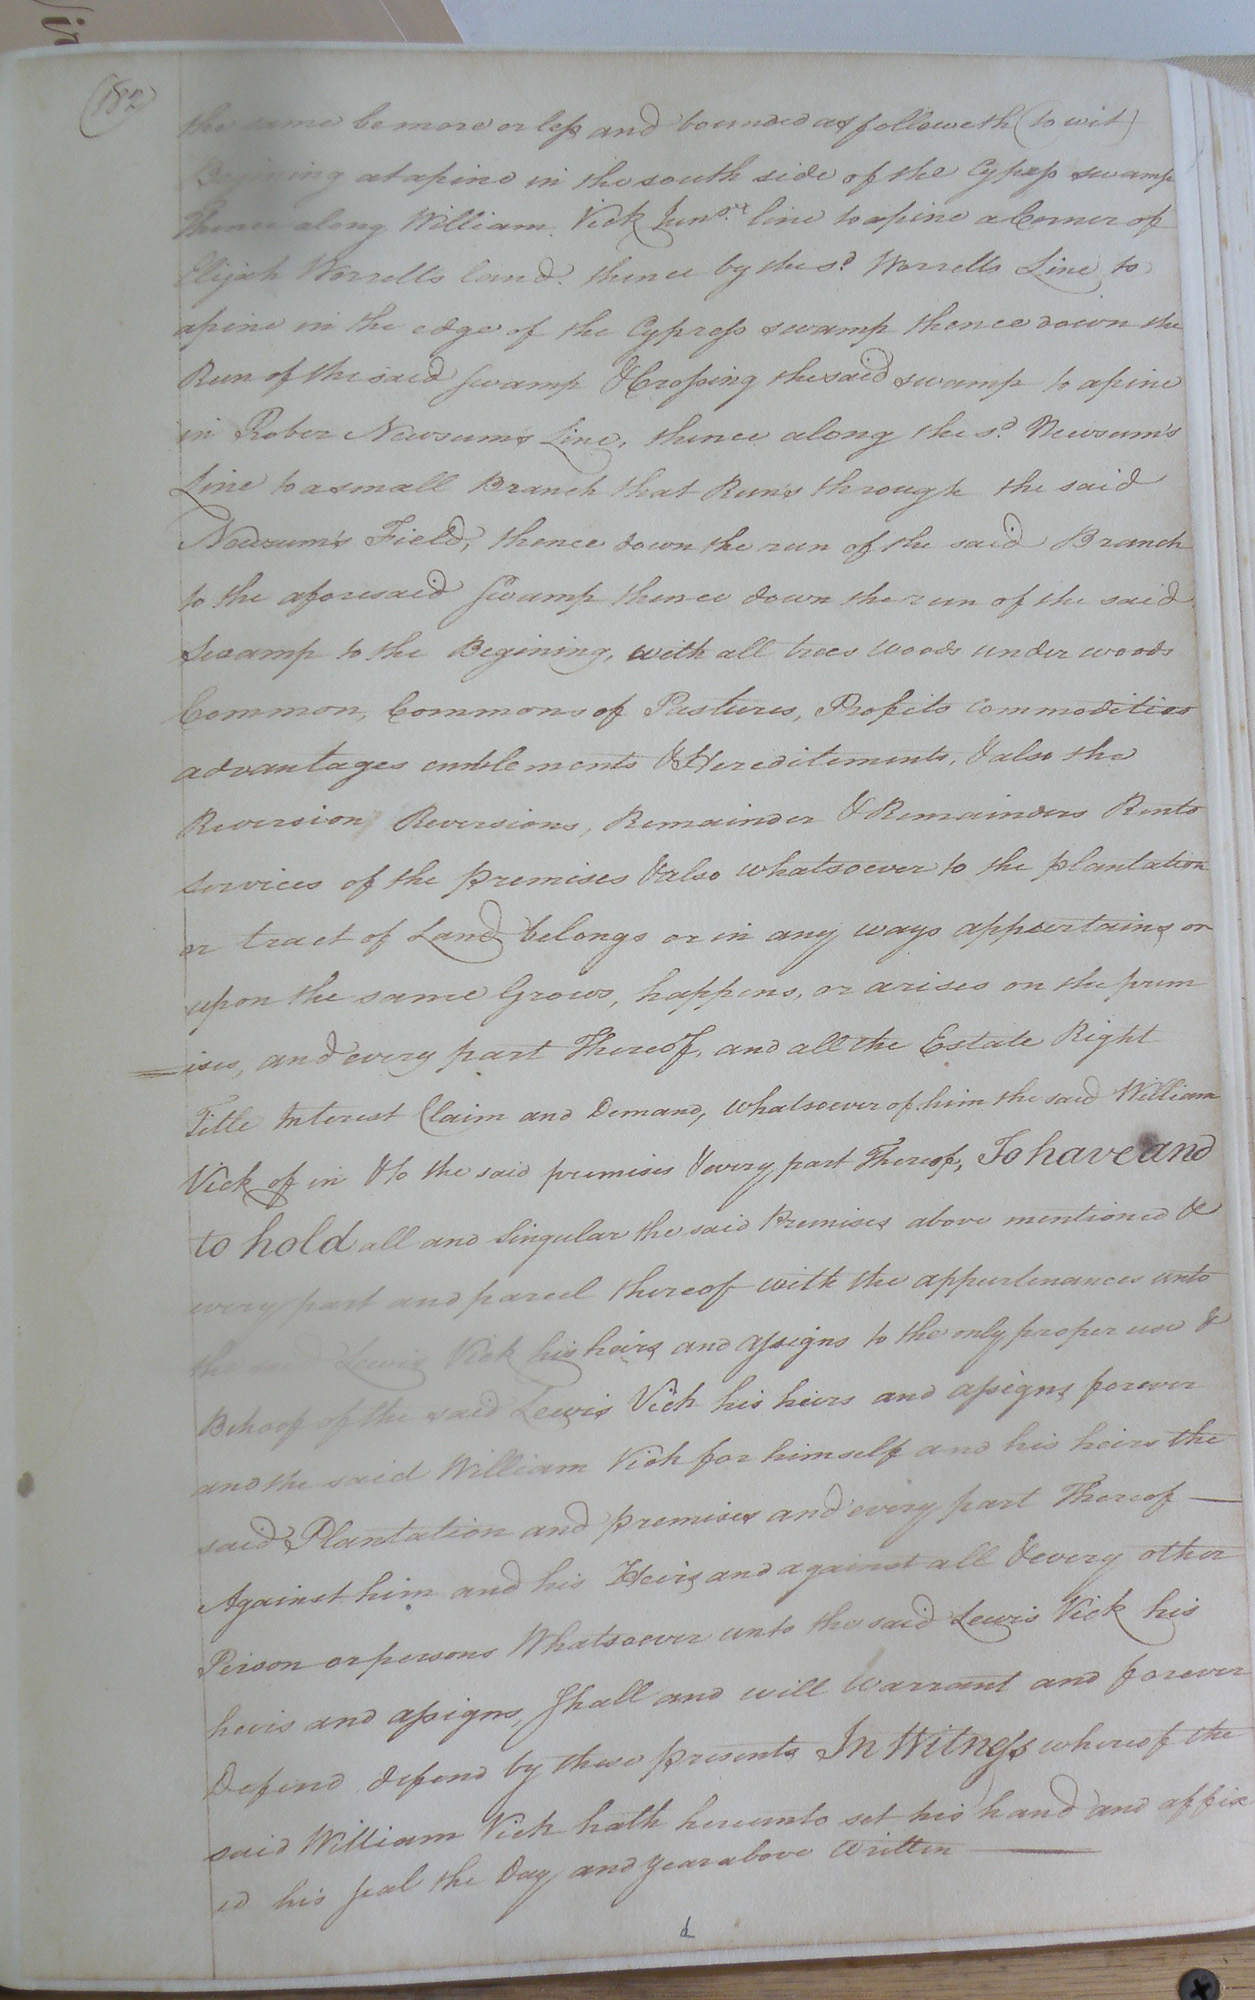 182
the same be more or less and bounded as followeth (to wit)
Begining at a pine in the south side of the Cypress swamp
thence along William Vick Junr line to a pine a Corner of
Elijah Worrells land. thence by the sd. Worrells Line to
a pine in the edge of the Cypress swamp thence down the
Run of the said swamp & Crossing the said swamp to a pine
in Rober Newsum's Line, thence along the sd. Newsum's
Line to a small Branch that Runs through the said
Newsum's Field, thence down the run of the said Branch
to the aforesaid Swamp thence down the run of the said
Swamp to the Begining, with all trees woods under woods
Common, Commons of Pastures, Profits commodities
advantages emblements & Hereditements, & also the
Reversion Reversions, Remainder & Remainders Rents
services of the premises & also whatsoever to the plantation
or tract of Land belongs or in any ways appertains or
upon the same Grows, happens, or arises on the prem
ises, and every part Thereof, and all the Estate Right
Title Interest Claim and Demand, whatsoever of him the said William
Vick of in & to the said premises & every part Thereof, To have and
to hold all and Singular the said Premises above mentioned &
every part and parcel thereof with the appurtenances unto
the said Lewis Vick his heirs and assigns to the only proper use &
Behoof of the said Lewis Vick his heirs and assigns forever
and the said William Vick for himself and his heirs the
said Plantation and premises and every part Thereof —
Against him and his Heirs and against all & every other
Person or persons Whatsoever unto the said Lewis Vick his
heirs and assigns, Shall and will Warrant and forever
Defend defend by these presents In Witness whereof the
said William Vick hath hereunto set his hand and affix
ed his seal the Day and year above Written —